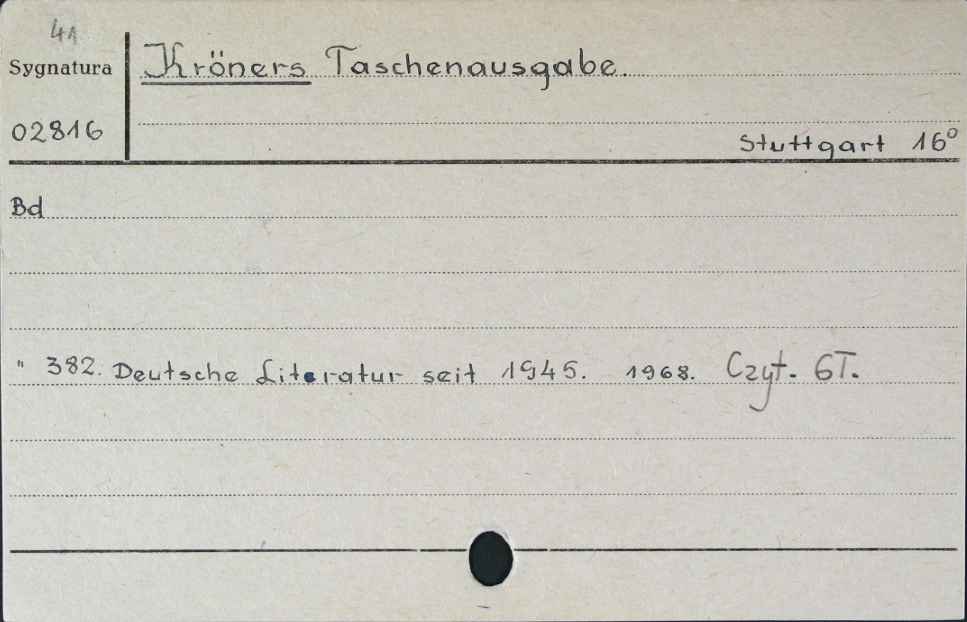 41
Sygnatura
Kröners Taschenausgabe.
02816
Stuttgart 16°
Bd
" 382. Deutsche Literatur seit 1945. 1968. Czyt. GT.